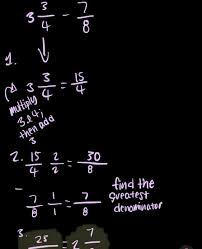 3 3/4 - 7/8
1.
3 3/4 = 15/4
multiply
3 & 4,
then add
3
2. 15/4 2/2 = 30/8
-
7/8 1/1 = 7/8
find the
greatest
denominator
3. 23 = 2 7